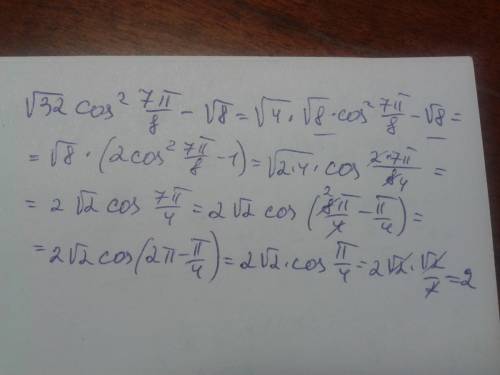 √32 cos² 7π/8 − √8 = √4 · √8 · cos² 7π/8 − √8 =
= √8 · (2cos² 7π/8 − 1) = √2·4 · cos 2·7π/8 4 =
= 2√2 cos 7π/4 = 2√2 cos (2 8π/4 − π/4) =
= 2√2 cos(2π − π/4) = 2√2 · cos π/4 = 2√2 · √2/2 = 2